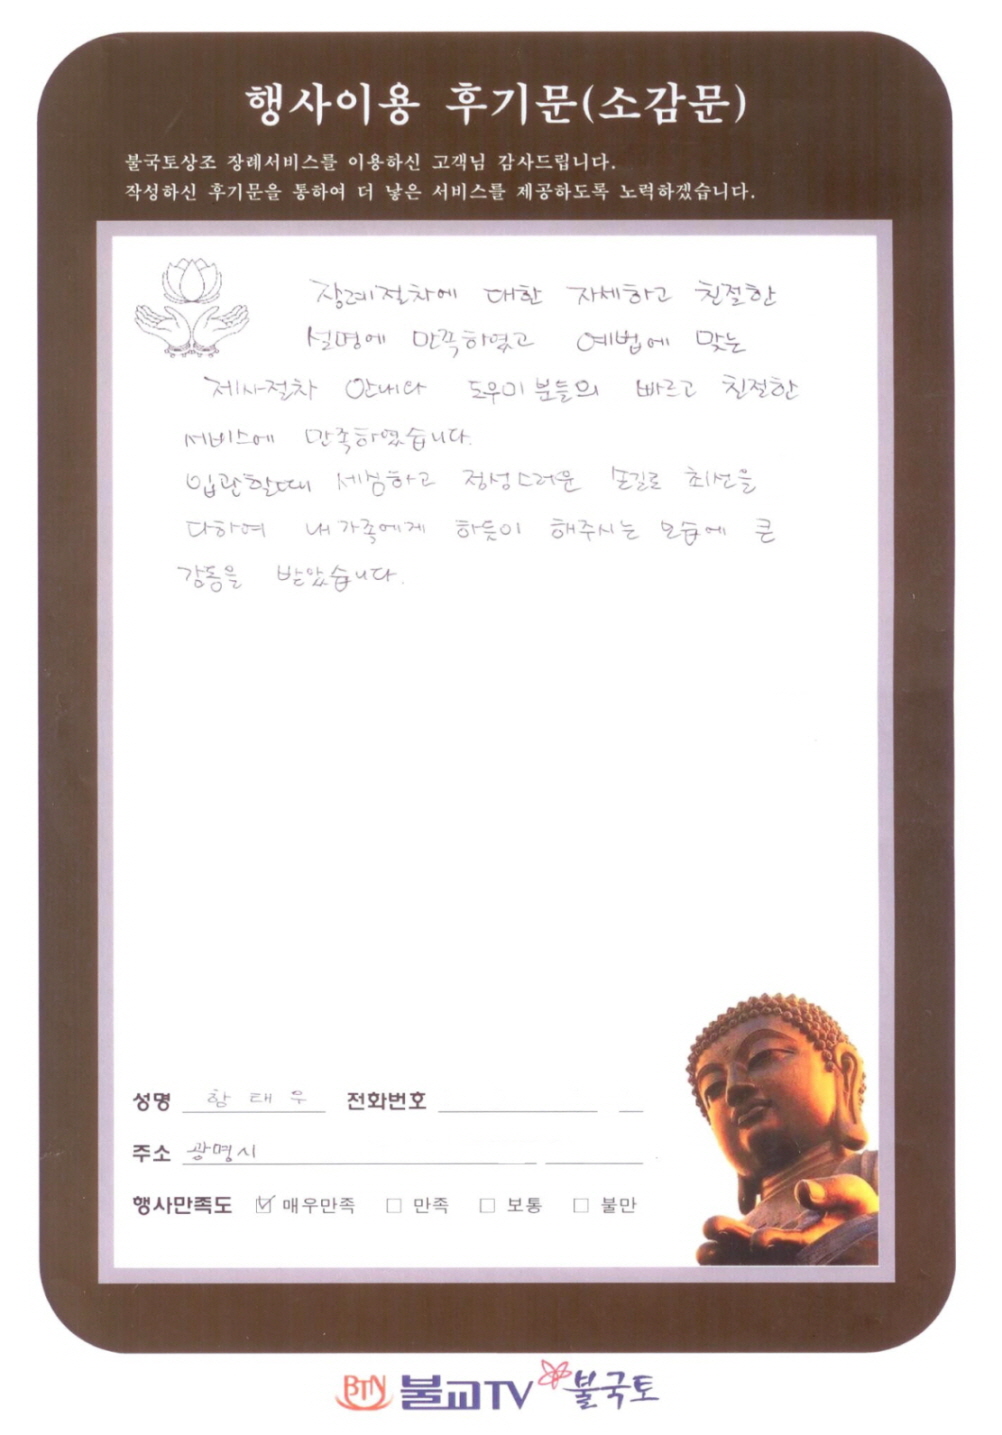 행사이용 후기문(소감문)
불국토상조 장례서비스를 이용하신 고객님 감사드립니다.
작성하신 후기문을 통하여 더 낳은 서비스를 제공하도록 노력하겠습니다.
장례절차에 대한 자세하고 친절한
설명에 만족하였고 예법에 맞는
제사절차 안내와 도우미분들의 빠르고 친절한
서비스에 만족하였습니다.
입관할때 세심하고 정성스러운 손길로 최선을
다하여 내가족에게 하듯이 해주시는 모습에 큰
감동을 받았습니다.
성명 함태우 전화번호
주소 광명시
행사만족도 ☑ 매우만족 □ 만족 □ 보통 □ 불만
BTN 불교TV 불국토